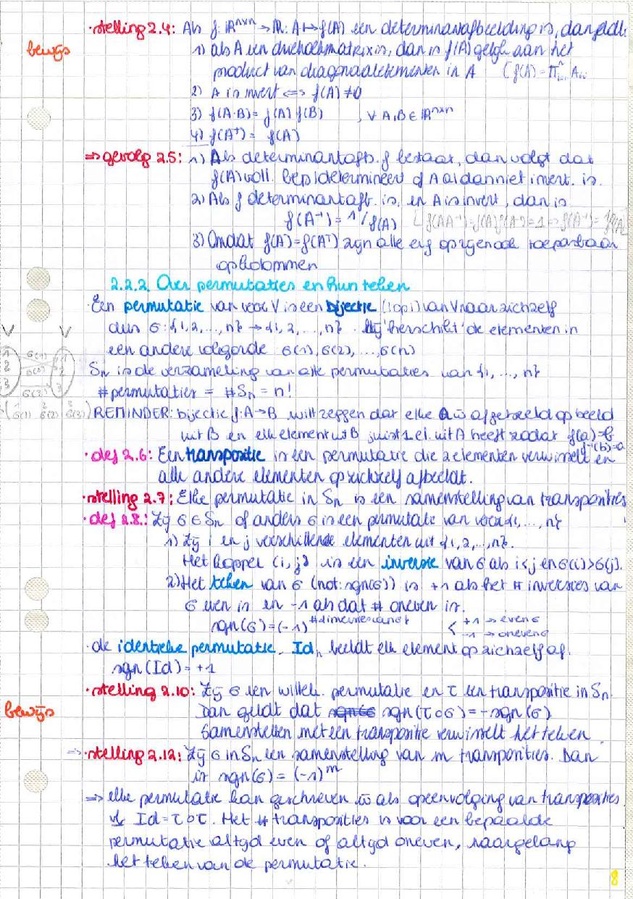 · stelling 2.4: Als f: ℝⁿˣⁿ → ℝ: A ↦ f(A) een determinantafbeelding is, dan geldt
bewijs
1) als A een driehoekmatrix is, dan is f(A) gelijk aan het
product van diagonaalelementen in A (f(A) = Π
2) A is invert ⇔ f(A) ≠ 0
3) f(A·B) = f(A) f(B) , ∀ A,B ∈ ℝⁿˣⁿ
4) f(Aᵀ) = f(A)
⇒ gevolg 2.5: 1) Als determinantafb. f bestaat, dan volgt dat
f(A) voll. bepaalt/determineert of A al dan niet invert. is.
2) Als f determinantafb. is, en A is invert, dan is
f(A⁻¹) = 1/f(A) (f(AA⁻¹) = f(A) f(A⁻¹) = 1 ⇒ f(A⁻¹) = 1/f(A)
3) Omdat f(A) = f(Aᵀ) zijn alle eig op rijen ook toepasbaar
op kolommen
2.2.2 Over permutaties en hun teken
Een permutatie van voor V is een bijectie (1op1) van V naar zichzelf
dus σ: {1, 2, ..., n} → {1, 2, ..., n} Hij 'herschikt' de elementen in
een andere volgorde σ(1), σ(2), ..., σ(n)
Sₙ is de verzameling van alle permutaties van {1, ..., n}
#permutaties = #Sₙ = n!
REMINDER: bijectie f: A→B wilt zeggen dat elke a w afgebeeld op beeld
uit B en elk element uit B juist 1 el. uit A heeft zodat f(a) = b
f⁻¹(b) = a
· def 2.6: Een transpositie is een permutatie die 2 elementen verwisselt en
alle andere elementen op zichzelf afbeeldt.
· stelling 2.7: Elke permutatie in Sₙ is een samenstelling van transposities
· def 2.8: Zij σ ∈ Sₙ of anders σ is een permutatie van voor {1, ..., n}
1) Zij i en j verschillende elementen uit {1, 2, ..., n}.
Het koppel (i, j) is een inversie van σ als i<j en σ(i) > σ(j).
2) Het teken van σ (not: sgn(σ)) is +1 als het # inversies van
σ even is en -1 als dat # oneven is.
sgn(σ) = (-1)^#inversies van σ < +1 → even σ
-1 → oneven σ
· de identieke permutatie Idₙ beeldt elk element op zichzelf af.
sgn(Id) = +1
· stelling 2.10: Zij σ een willek. permutatie en τ een transpositie in Sₙ.
bewijs
Dan geldt dat sgn(τ∘σ) = -sgn(σ)
Samenstellen met een transpositie verwisselt het teken.
⇒ · stelling 2.12: Zij σ in Sₙ een samenstelling van m transposities. Dan
is sgn(σ) = (-1)ᵐ
⇒ elke permutatie kan geschreven w als opeenvolging van transposities
Id = τ∘τ. Het # transposities is voor een bepaalde
permutatie altijd even of altijd oneven, naargelang
het teken van de permutatie.
8